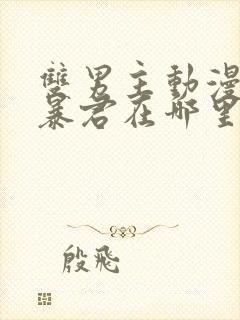 雙男主動漫
暴君在哪里
殷飛